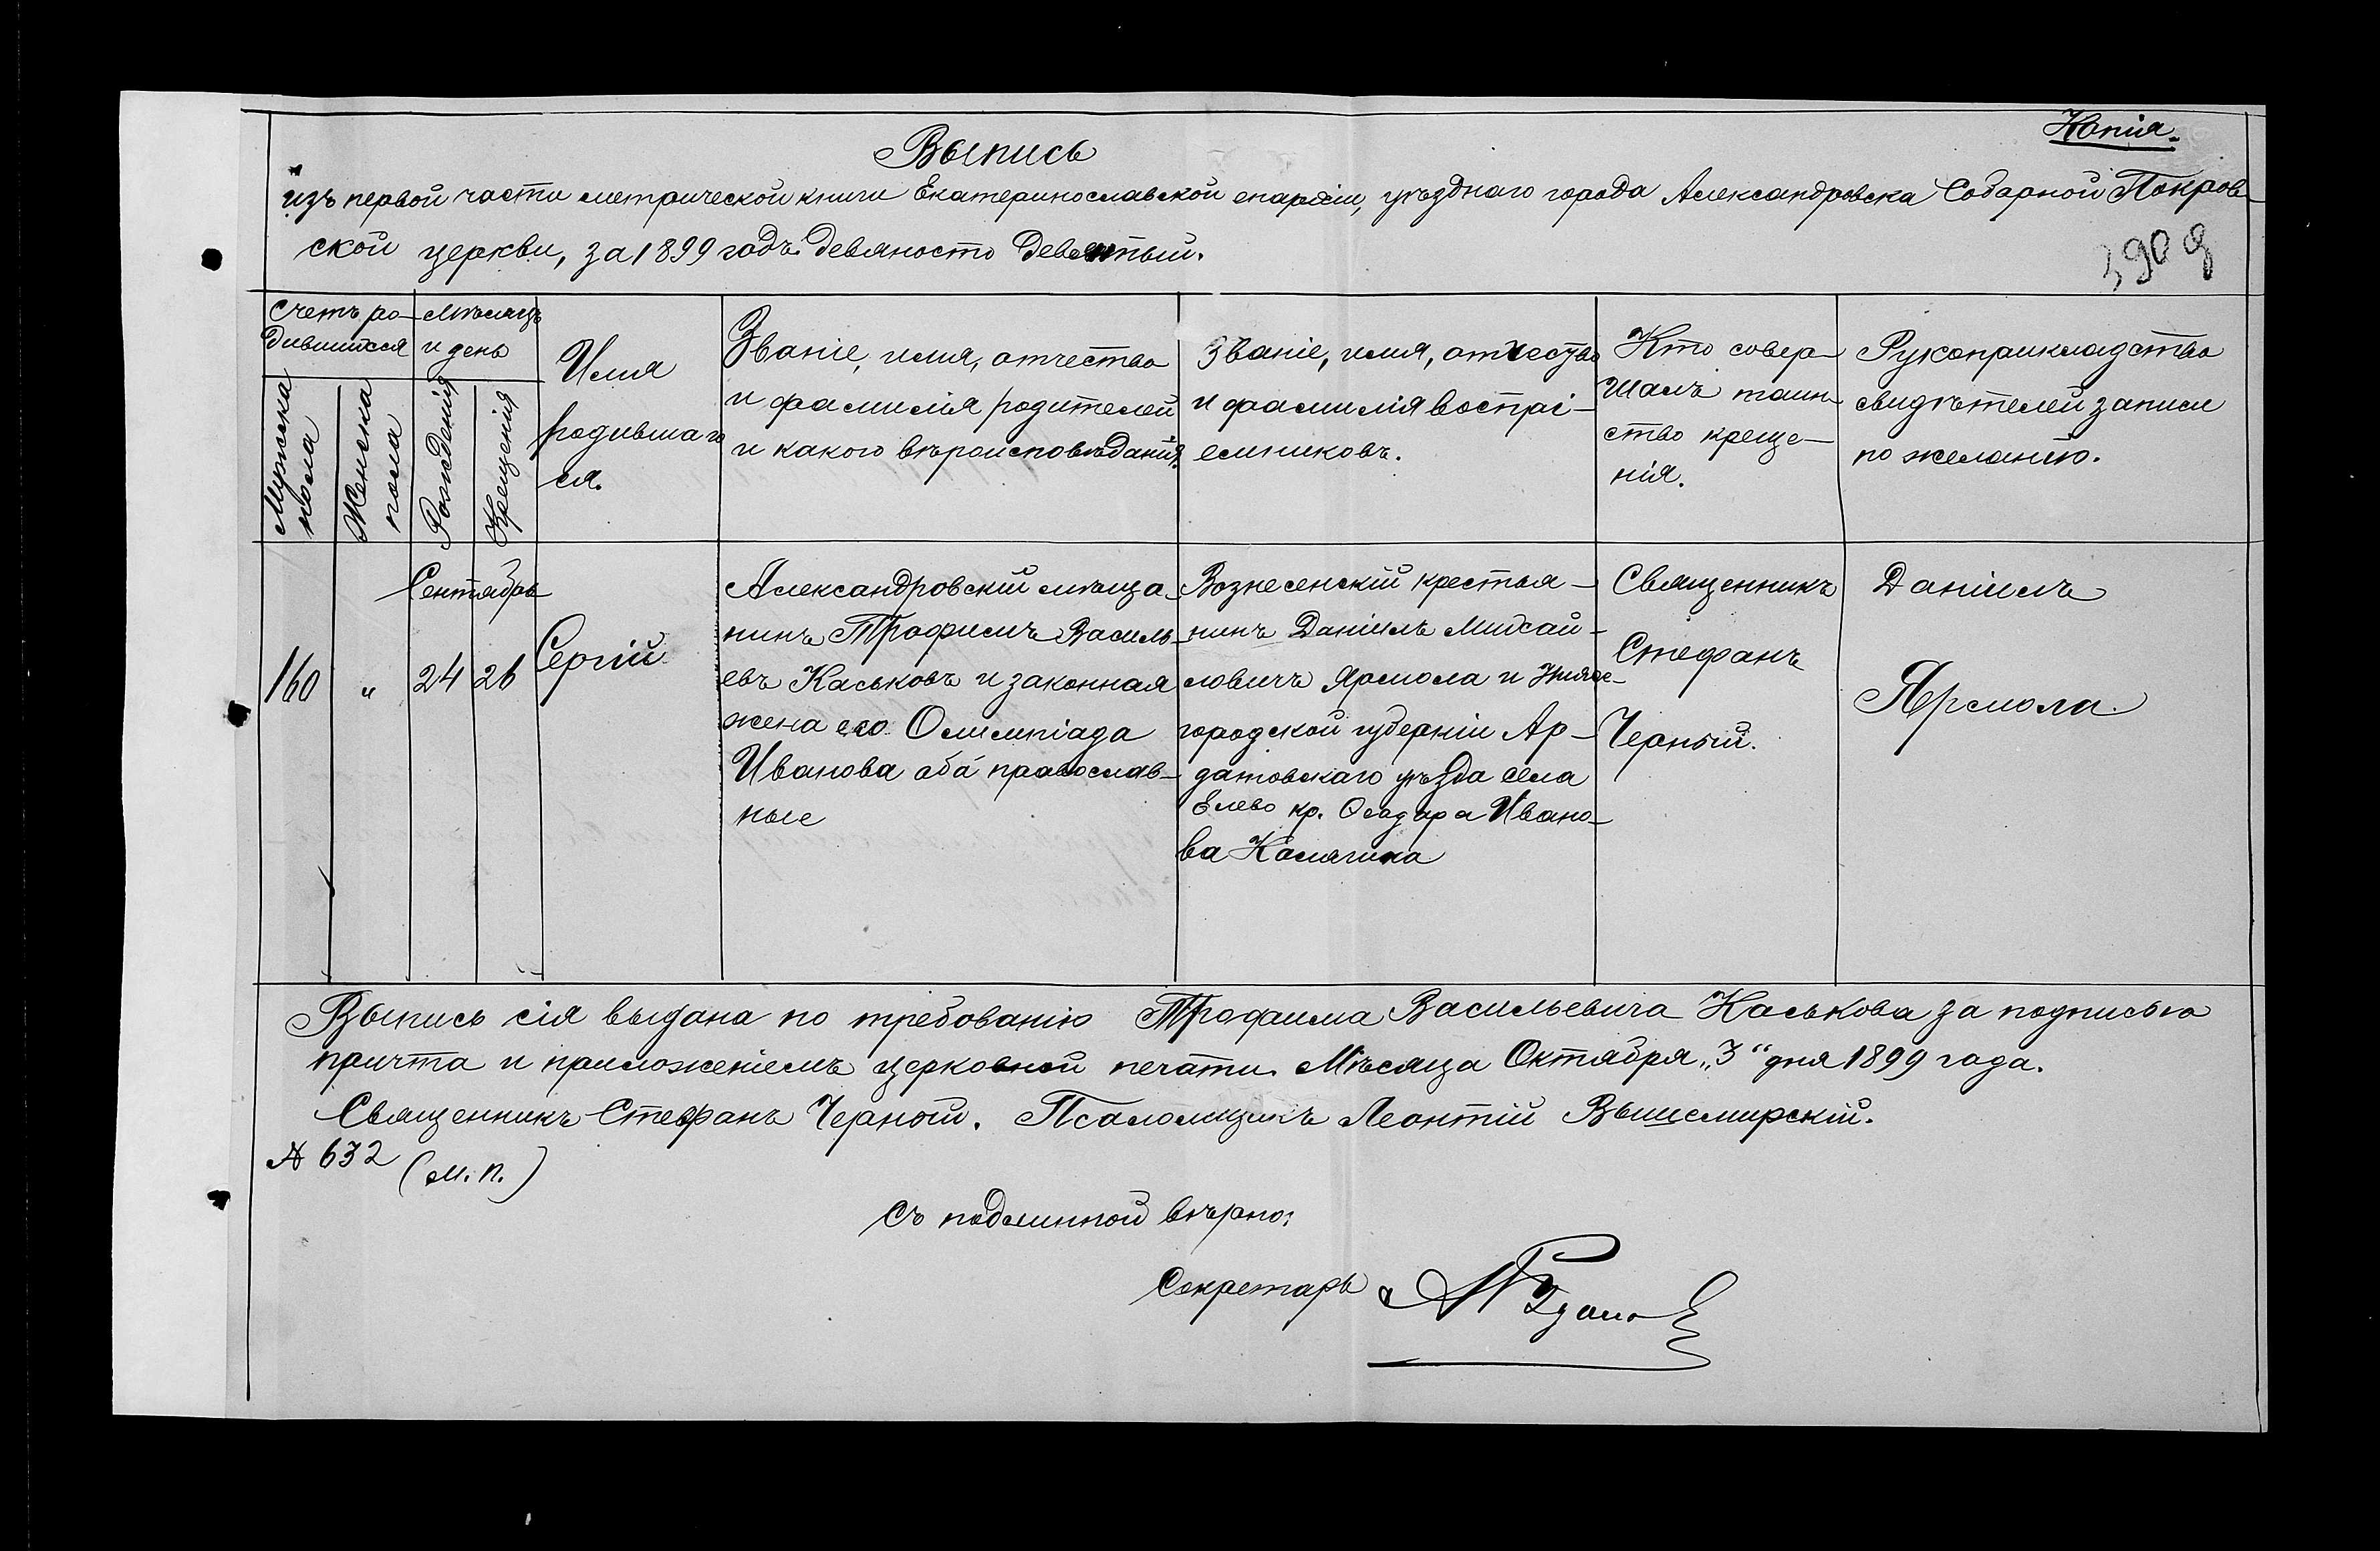 Копія.
Выпись
изъ первой части метрической книги Екатеринославской епархіи, уѣзднаго города Александровска Соборной Покров-
ской церкви, за 1899 годъ девяносто девятый.
Счетъ ро-
дившихся
Мужска
пола
Женска
пола
Мѣсяцъ
и день
Рожденія
Крещенія
Имя
родившаго
ся.
Званіе, имя, отчество
и фамилія родителей
и какого вѣроисповѣданія.
Званіе, имя, отчество
и фамилія воспрі-
емниковъ.
Кто совер-
шалъ таин-
ство креще-
нія.
Рукоприкладство
свидѣтелей записи
по желанію.
160
"
Сентябрь
24
26
Сергій
Александровскій мѣща-
нинъ Трофимъ Василь-
евъ Каськовъ и законная
жена его Олимпіада
Иванова оба православ-
ные
Вознесенскій крестья-
нинъ Даніилъ Михай-
ловичъ Ярмола и Ниже-
городской губерніи Ар-
датовскаго уѣзда села
Елево кр. Ивано-
ва Калягина
Священникъ
Стефанъ
Черный.
Даніилъ
Ярмола.
Выпись сія выдана по требованію Трофима Васильевича Каськова за подписью
причта и приложеніемъ церковной печати. Мѣсяца Октября „3“ дня 1899 года.
Священникъ Стефанъ Черной. Псаломщикъ Леонтій Вышемирскій.
№ 632
(М. П.)
Съ подлинной вѣрно:
Секретарь